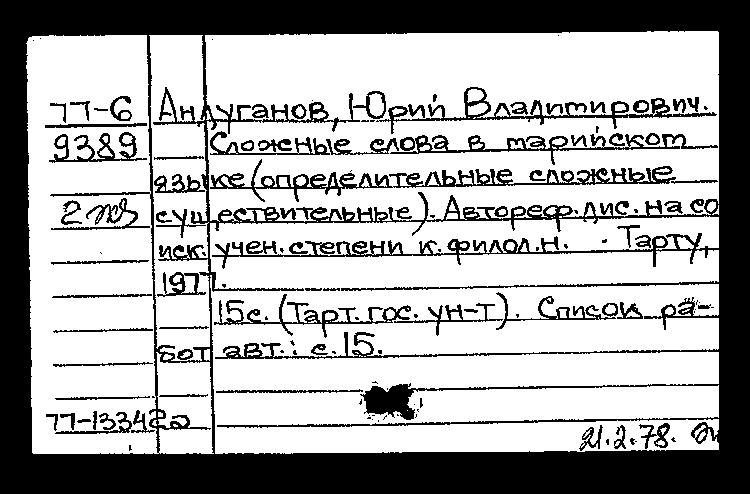 77-6 Андуганов, Юрий Владимирович.
9389 Сложные слова в марийском
языке (определительные сложные
2 экз существительные). Автореф. дис. на со
иск. учен. степени к. филол. н. · Тарту,
1977.
15 с. (Тарт. гос. ун-т). Список ра-
бот авт.: с. 15.
77-13342а
21.2.78.